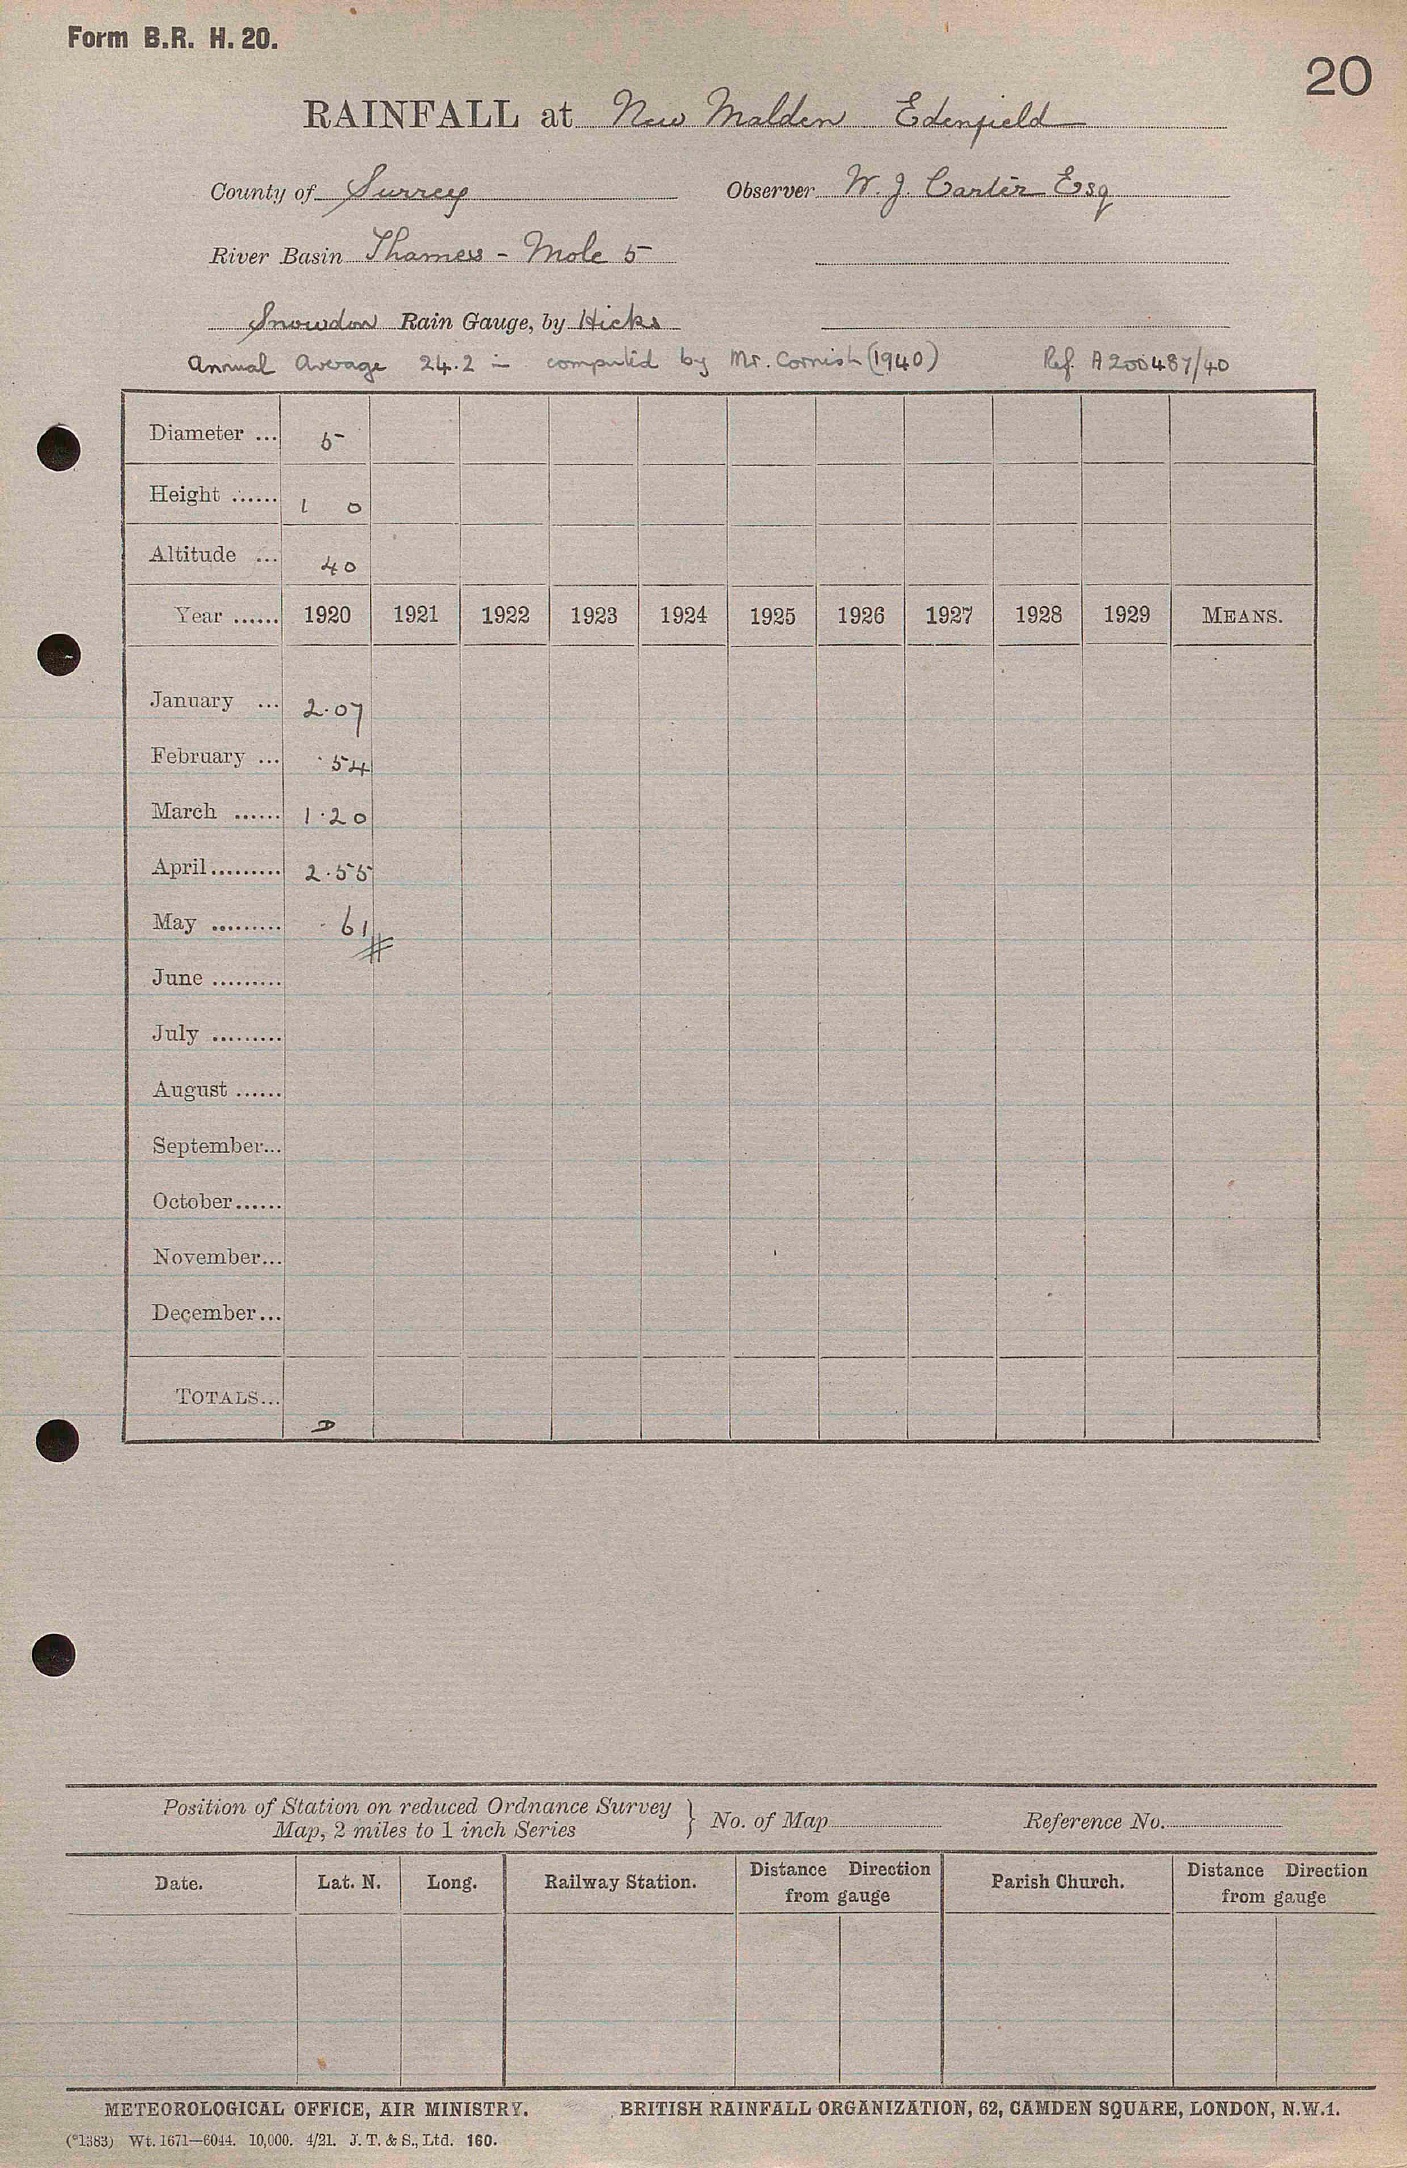 Form B.R. H. 20.
20
RAINFALL at New Malden Edenfield
County of Surrey Observer W. J. Carter Esq
River Basin Thames - Mole 5
Snowdon Rain Gauge, by Hicks
Annual Average 24.2 in computed by Mr. Cornish (1940) Ref. A200487/40
Diameter ... 5
Height ...... 1 0
Altitude ... 40
Year ...... 1920 1921 1922 1923 1924 1925 1926 1927 1928 1929 MEANS.
January ... 2.07
February ... .54
March ...... 1.20
April ......... 2.55
May ......... .61
June .........
July .........
August ......
September...
October......
November...
December...
TOTALS... D
Position of Station on reduced Ordnance Survey
Map, 2 miles to 1 inch Series } No. of Map Reference No.
Date. Lat. N. Long. Railway Station. Distance Direction from gauge Parish Church. Distance Direction from gauge
METEOROLOGICAL OFFICE, AIR MINISTRY. BRITISH RAINFALL ORGANIZATION, 62, CAMDEN SQUARE, LONDON, N.W.1.
(*1383) Wt. 1671—6044. 10,000. 4/21. J. T. & S., Ltd. 160.